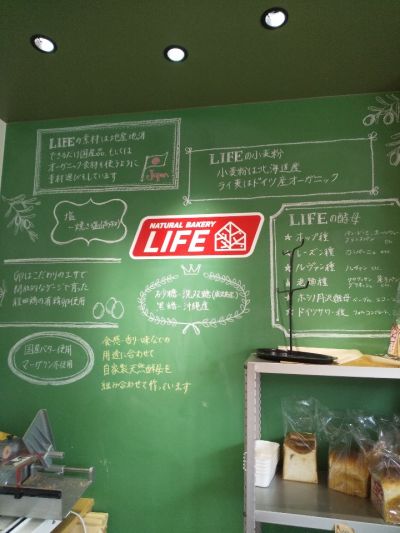 LIFEの素材は地産地消
できるだけ国産品、もしくは
オーガニック食材を使うように
素材選びをしています
Japan
LIFEの小麦粉
小麦粉は北海道産
ライ麦はドイツ産オーガニック
塩
NATURAL BAKERY
LIFE
LIFEの酵母
★ホップ種
★レーズン種
★ルヴァン種
★老麺種
★ホシノ丹沢酵母
★ドイツサワー種
卵はこだわりのエサで
砂糖・洗双糖
黒糖・沖縄産
国産バター使用
マーガリン不使用
食感・香り・味などの
用途に合わせて
自家製天然酵母を
組み合わせて作っています